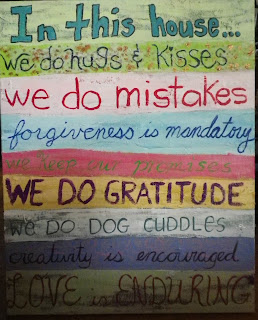 In this house...
we do hugs & kisses
we do mistakes
forgiveness is mandatory
we keep our promises
WE DO GRATITUDE
WE DO DOG CUDDLES
creativity is encouraged
LOVE is ENDURING